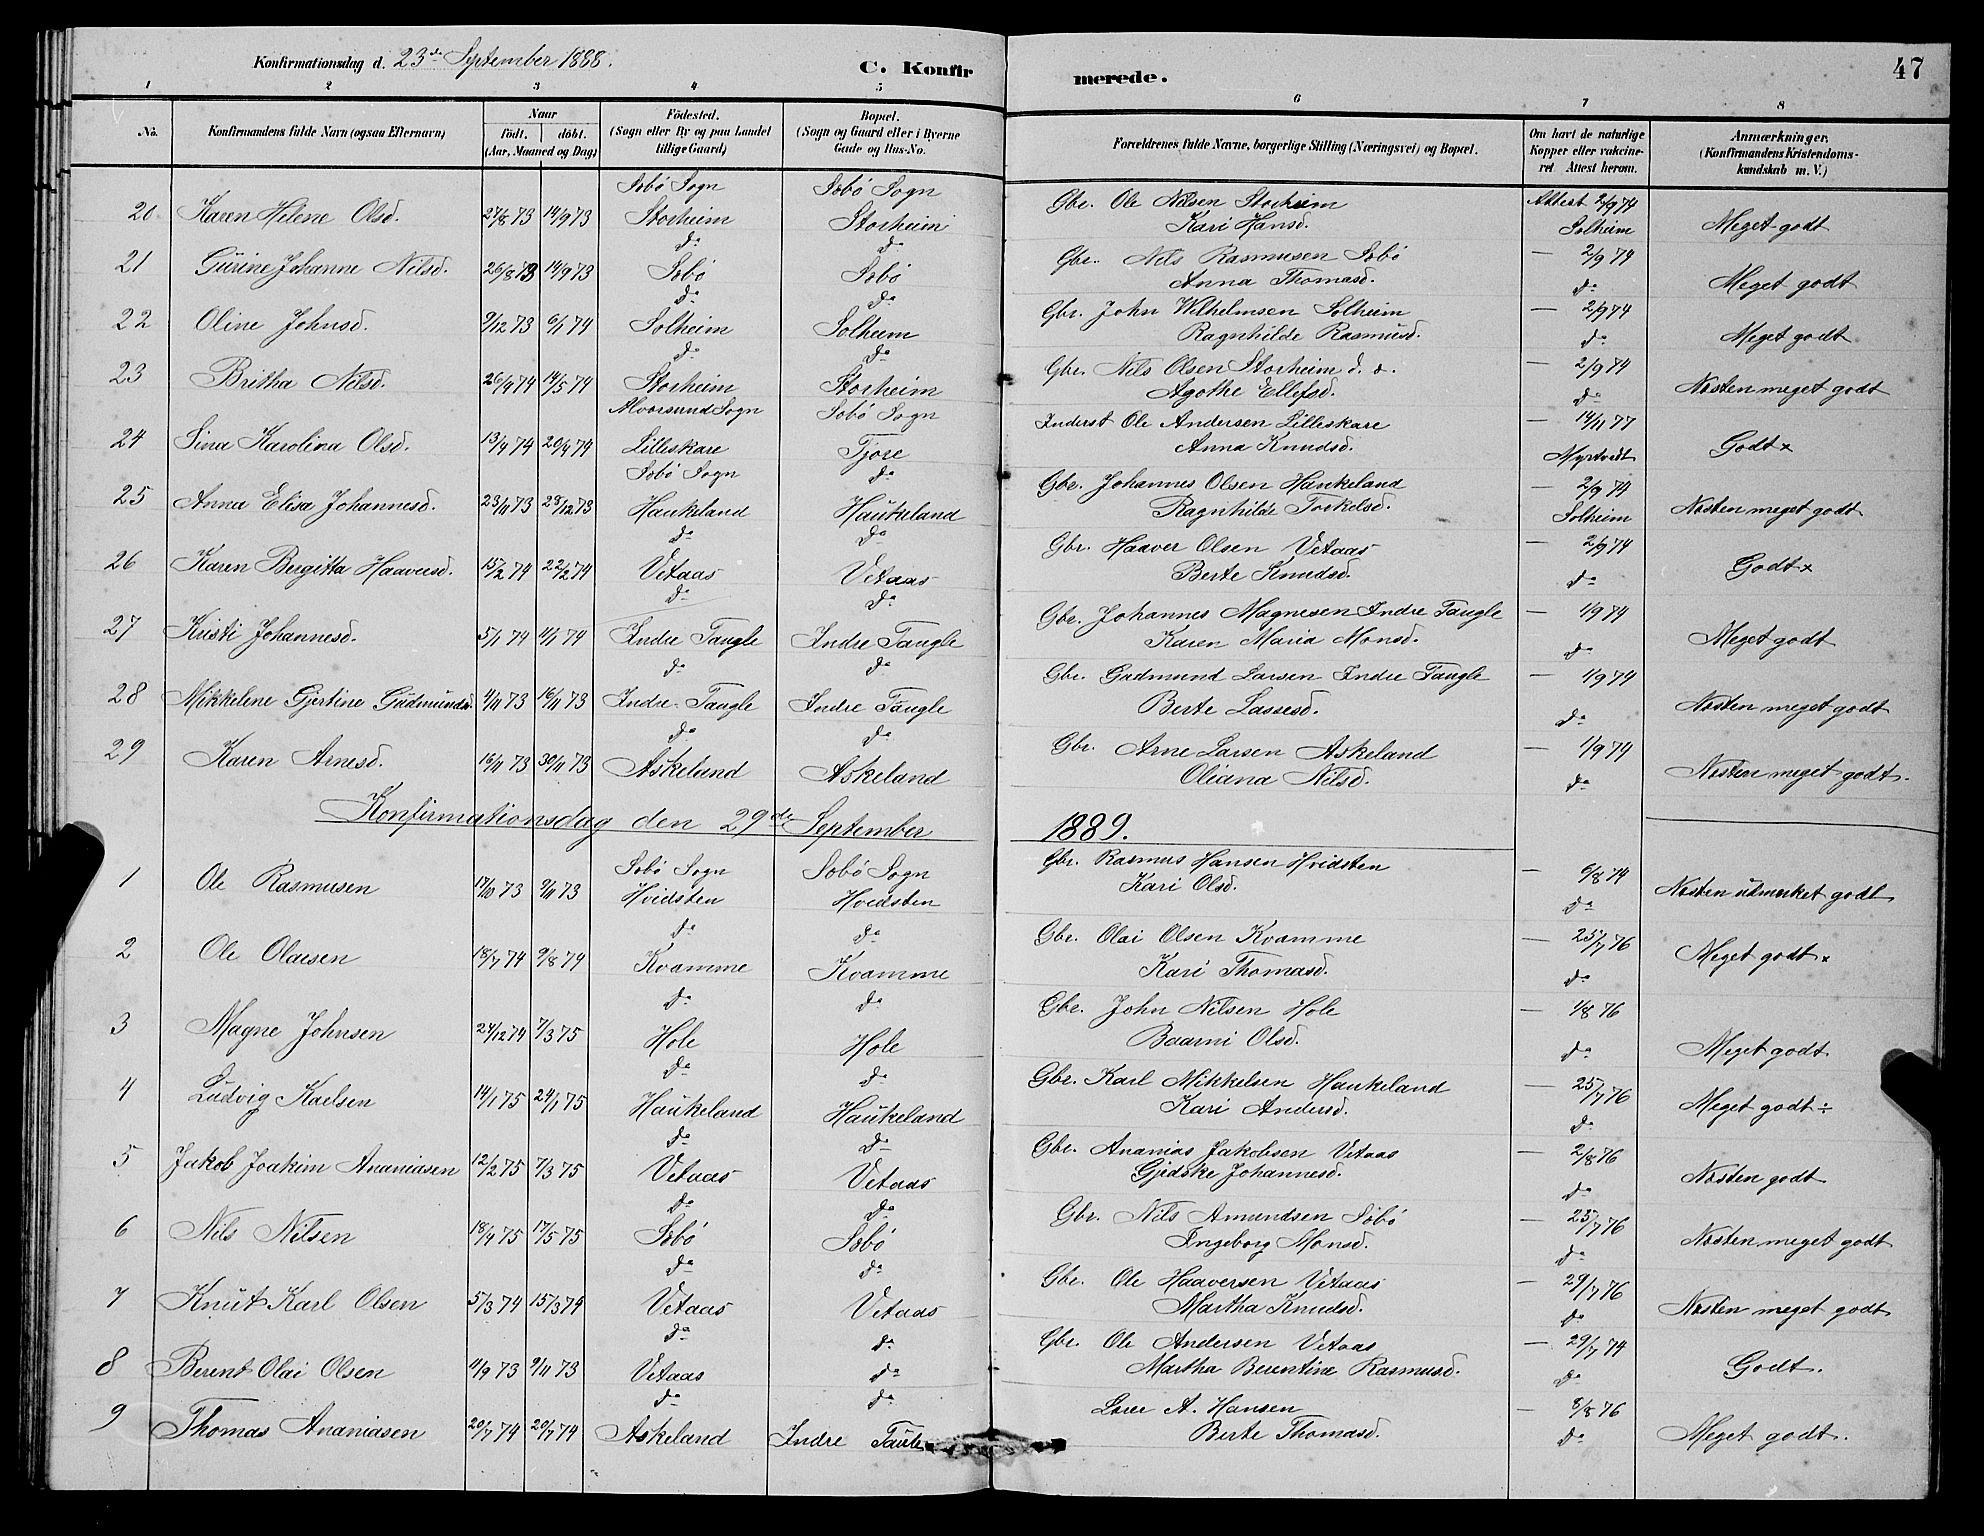 Konfirmationsdag d. 23de September 1888.
C. Konfir
merede.
47
1 2 3 4 5 6 7 8
No. Konfirmandens fulde Navn (ogsaa Efternavn) Naar født. døbt. (Aar, Maaned og Dag) Fødested. (Sogn eller By og paa Landet tillige Gaard) Bopæl. (Sogn og Gaard eller i Byerne Gade og Hus-No. Forældrenes fulde Navne, borgerlige Stilling (Næringsvei) og Bopæl. Om havt de naturlige Kopper eller vakcineret. Attest herom. Anmærkninger, (Konfirmandens Kristendomskundskab m. V.)
Sæbö Sogn Sæbö Sogn
20 Karen Helene Olsd. 27/8 73 14/9 73 Storheim Storheim Gbr. Ole Nilsen Storheim Kari Hansd. Attest 2/9 74 Solheim Meget godt
do do
21 Gurine Johanne Nilsd. 26/8 73 14/9 73 Sæbö Sæbö Gbr. Nils Rasmusen Sæbö Anna Thomasd. — 2/9 74 do Meget godt
do do
22 Oline Johnsd. 9/12 73 6/1 74 Solheim Solheim Gbr. John Wilhelmsen Solheim Ragnhilde Rasmusd. — 2/9 74 do Meget godt
do do
23 Britha Nilsd. 26/4 74 14/5 74 Storheim Storheim Gbr. Nils Olsen Storheim Agothe Ellefsd. — 2/9 74 do Næsten meget godt
Alversund Sogn Sæbö Sogn
24 Sina Karolina Olsd. 13/4 74 20/4 74 Lilleskare Tjore Inderst Ole Andersen Lilleskare Anna Knudsd. — 14/11 77 Myrtvedt Godt x
Sæbö Sogn do
25 Anna Elisa Johannesd. 23/11 73 28/12 73 Haukeland Haukeland Gbr. Johannes Olsen Haukeland Ragnhilde Torkelsd. — 2/9 74 Solheim Næsten meget godt
do do
26 Karen Bergitta Haaversd. 15/2 74 22/2 74 Vetaas Vetaas Gbr. Haaver Olsen Vetaas Berte Knudsd. — 2/9 74 do Godt x
do do
27 Kristi Johannesd. 5/1 74 11/1 74 Indre Taugle Indre Taugle Gbr. Johannes Magnesen Indre Taugle Karen Maria Monsd. — 1/9 74 do Meget godt
do do
28 Mikkelene Gjertine Gudmundsd. 4/11 73 16/11 73 Indre Taugle Indre Taugle Gbr. Gudmund Larsen Indre Taugle Berte Lassesd. — 1/9 74 do Næsten meget godt
do do
29 Karen Arnesd. 16/11 73 30/11 73 Askeland Askeland Gbr. Arne Larsen Askeland Oliana Nilsd. — 1/9 74 do Næsten meget godt.
Konfirmationsdag den 29de September 1889.
Sæbö Sogn Sæbö Sogn
1 Ole Rasmusen 17/10 73 9/11 73 Hvidsten Hvidsten Gbr. Rasmus Hansen Hvidsten Kari Olsd. — 6/8 74 do Næsten udmærket godt
do do
2 Ole Olaisen 18/7 74 9/8 74 Kvamme Kvamme Gbr. Olai Olsen Kvamme Kari Thomasd. — 25/7 76 do Meget godt x
do do
3 Magne Johnsen 24/12 74 7/3 75 Hole Hole Gbr. John Nilsen Hole Baarni Olsd. — 1/8 76 do Meget godt
do do
4 Ludvig Karlsen 14/1 75 24/1 75 Haukeland Haukeland Gbr. Karl Mikkelsen Haukeland Kari Andersd. — 25/7 76 do Meget godt ÷
do do
5 Jakob Joakim Ananiasen 12/2 75 7/3 75 Vetaas Vetaas Gbr. Ananias Jakobsen Vetaas Gjedske Johannesd. — 2/8 76 do Næsten godt
do do
6 Nils Nilsen 18/4 75 17/5 75 Sæbö Sæbö Gbr. Nils Amundsen Sæbö Ingeborg Monsd. — 25/7 76 do Næsten meget godt
do do
7 Knut Karl Olsen 5/3 74 15/3 74 Vetaas Vetaas Gbr. Ole Haaversen Vetaas Martha Knudsd. — 29/7 76 do Næsten meget godt
do do
8 Berent Olai Olsen 11/9 73 9/11 73 Vetaas do Gbr. Ole Andersen Vetaas Martha Berentine Rasmusd. — 29/7 74 do Godt.
do do
9 Thomas Ananiasen 20/7 74 20/7 74 Askeland Indre A. Hansen Berte Thomasd. — 8/8 76 do Meget godt.